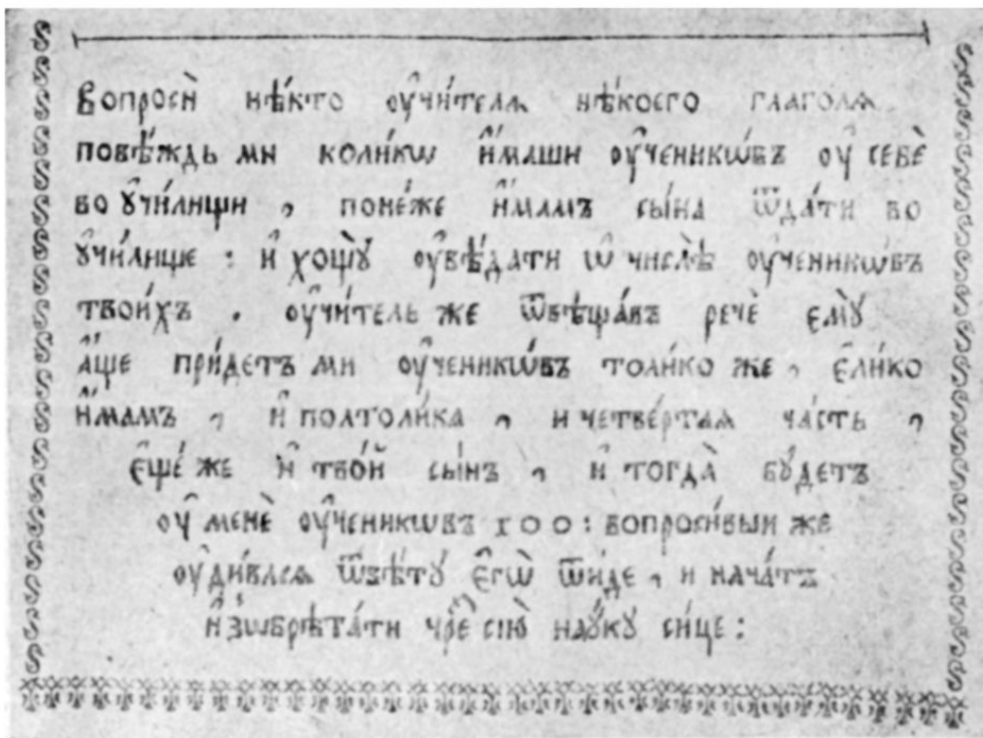 Вопросѝ нѣ́кто ᲂу҆чи́телѧ нѣ́коего глаголѧ
повѣ́ждь ми коли́кѡ и҆́маши ᲂу҆ченикѡ́въ ᲂу҆ себѐ
во ꙋ҆чи́лищи , поне́же и҆́мамъ сы́на ѿда́ти во
ꙋ҆чи́лище : и҆ хощꙋ̀ ᲂу҆вѣ́дати ѡ҆ числѣ̀ ᲂу҆ченикѡ́въ
твои́хъ . ᲂу҆чи́тель же ѿвѣща́въ речѐ є҆мꙋ̀
а҆́ще прїи́детъ ми ᲂу҆ченикѡ́въ толи́ко же , є҆ли́ко
и҆́мамъ , и҆ полтоли́ка , и четве́ртаѧ ча́сть ,
є҆ще́ же и҆ тво́й сы́нъ , и҆ тогда̀ бꙋ́детъ
ᲂу҆ менѐ ᲂу҆ченикѡ́въ 100 : вопроси́выи же
ᲂу҆ди́влсѧ ѿвѣ́тꙋ є҆гѡ̀ ѿи́де , и нача́тъ
и҆зѡбрѣта́ти чре́ сїю̀ наꙋ́кꙋ си́це :